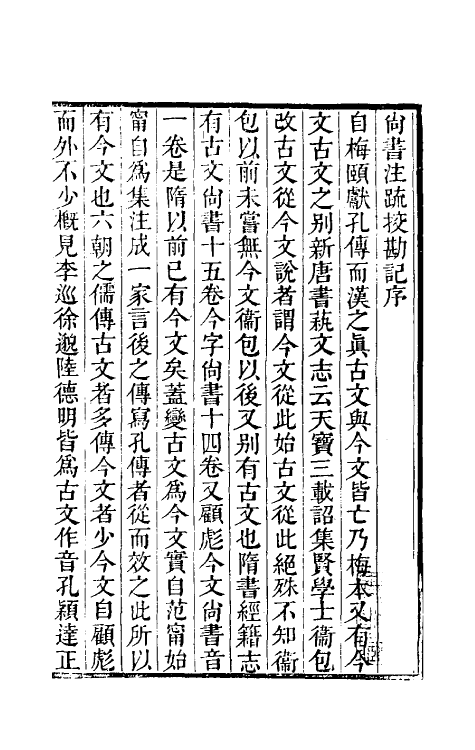 尙書注疏挍勘記序
自梅頤獻孔傳而漢之眞古文與今文皆亡乃梅本又有今
文古文之别新唐書蓺文志云天寶三載詔集賢學士衞包
改古文從今文說者謂今文從此始古文從此絕殊不知衞
包以前未嘗無今文衞包以後又别有古文也隋書經籍志
有古文尙書十五卷今字尙書十四卷又顧彪今文尙書音
一卷是隋以前已有今文矣葢變古文爲今文實自范甯始
甯自爲集注成一家言後之傳寫孔傳者從而效之此所以
有今文也六朝之儒傳古文者多傳今文者少今文自顧彪
而外不少槪見李巡徐邈陸德明皆爲古文作音孔穎達正